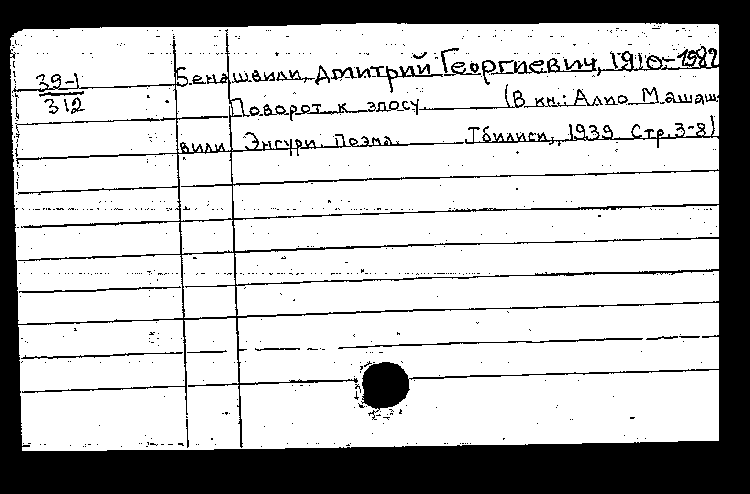 39-1
312
Бенашвили, Дмитрий Георгиевич, 1910-1982
Поворот к эпосу. (В кн.: Алио Машаш-
вили Энгури. Поэма. Тбилиси, 1939 Стр. 3-8)